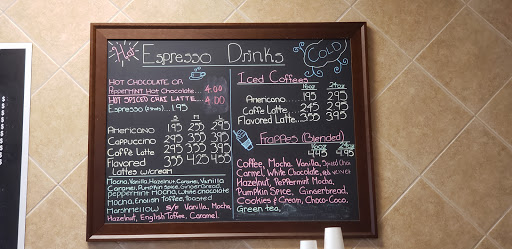 Hot Espresso Drinks COLD
HOT CHOCOLATE OR
PEPPERMINT Hot Chocolate... 4.00
HOT SPICED CHAI LATTE... 4.00
Espresso 1.95
S M L
Americano 195 255 295
Cappuccino 295 355 395
Caffe Latte 295 355 395
Flavored 355 425 455
Lattes w/cream
Mocha, Vanilla, Hazelnut, Caramel, Vanilla
Caramel, Pumpkin Spice, Gingerbread,
Peppermint Mocha, White Chocolate
Mocha, English Toffee, Toasted
Marshmellow S/F Vanilla, Mocha,
Hazelnut, English Toffee, Caramel.
Iced Coffees
16oz 24oz
Americano 195 295
Caffe Latte 245 295
Flavored Latte... 355 395
Frappes (Blended)
16oz 24oz
4.45 4.95
Coffee, Mocha, Vanilla, Spiced Chai
Carmel, White Chocolate,
Hazelnut, Peppermint Mocha,
Pumpkin Spice, Gingerbread,
Cookies & Cream, Choco-Coco,
Green tea,